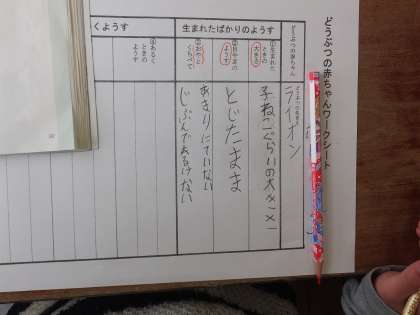 どうぶつの赤ちゃんワークシート
どうぶつの赤ちゃん
ライオン
生まれたばかりのようす
①生まれた
ときの
大きさ
子ねこぐらいの大きさ
ようす
とじたまま
③おやと
くらべて
あまりにていない
じぶんであるけない
くようす
①あるく
ときの
ようす